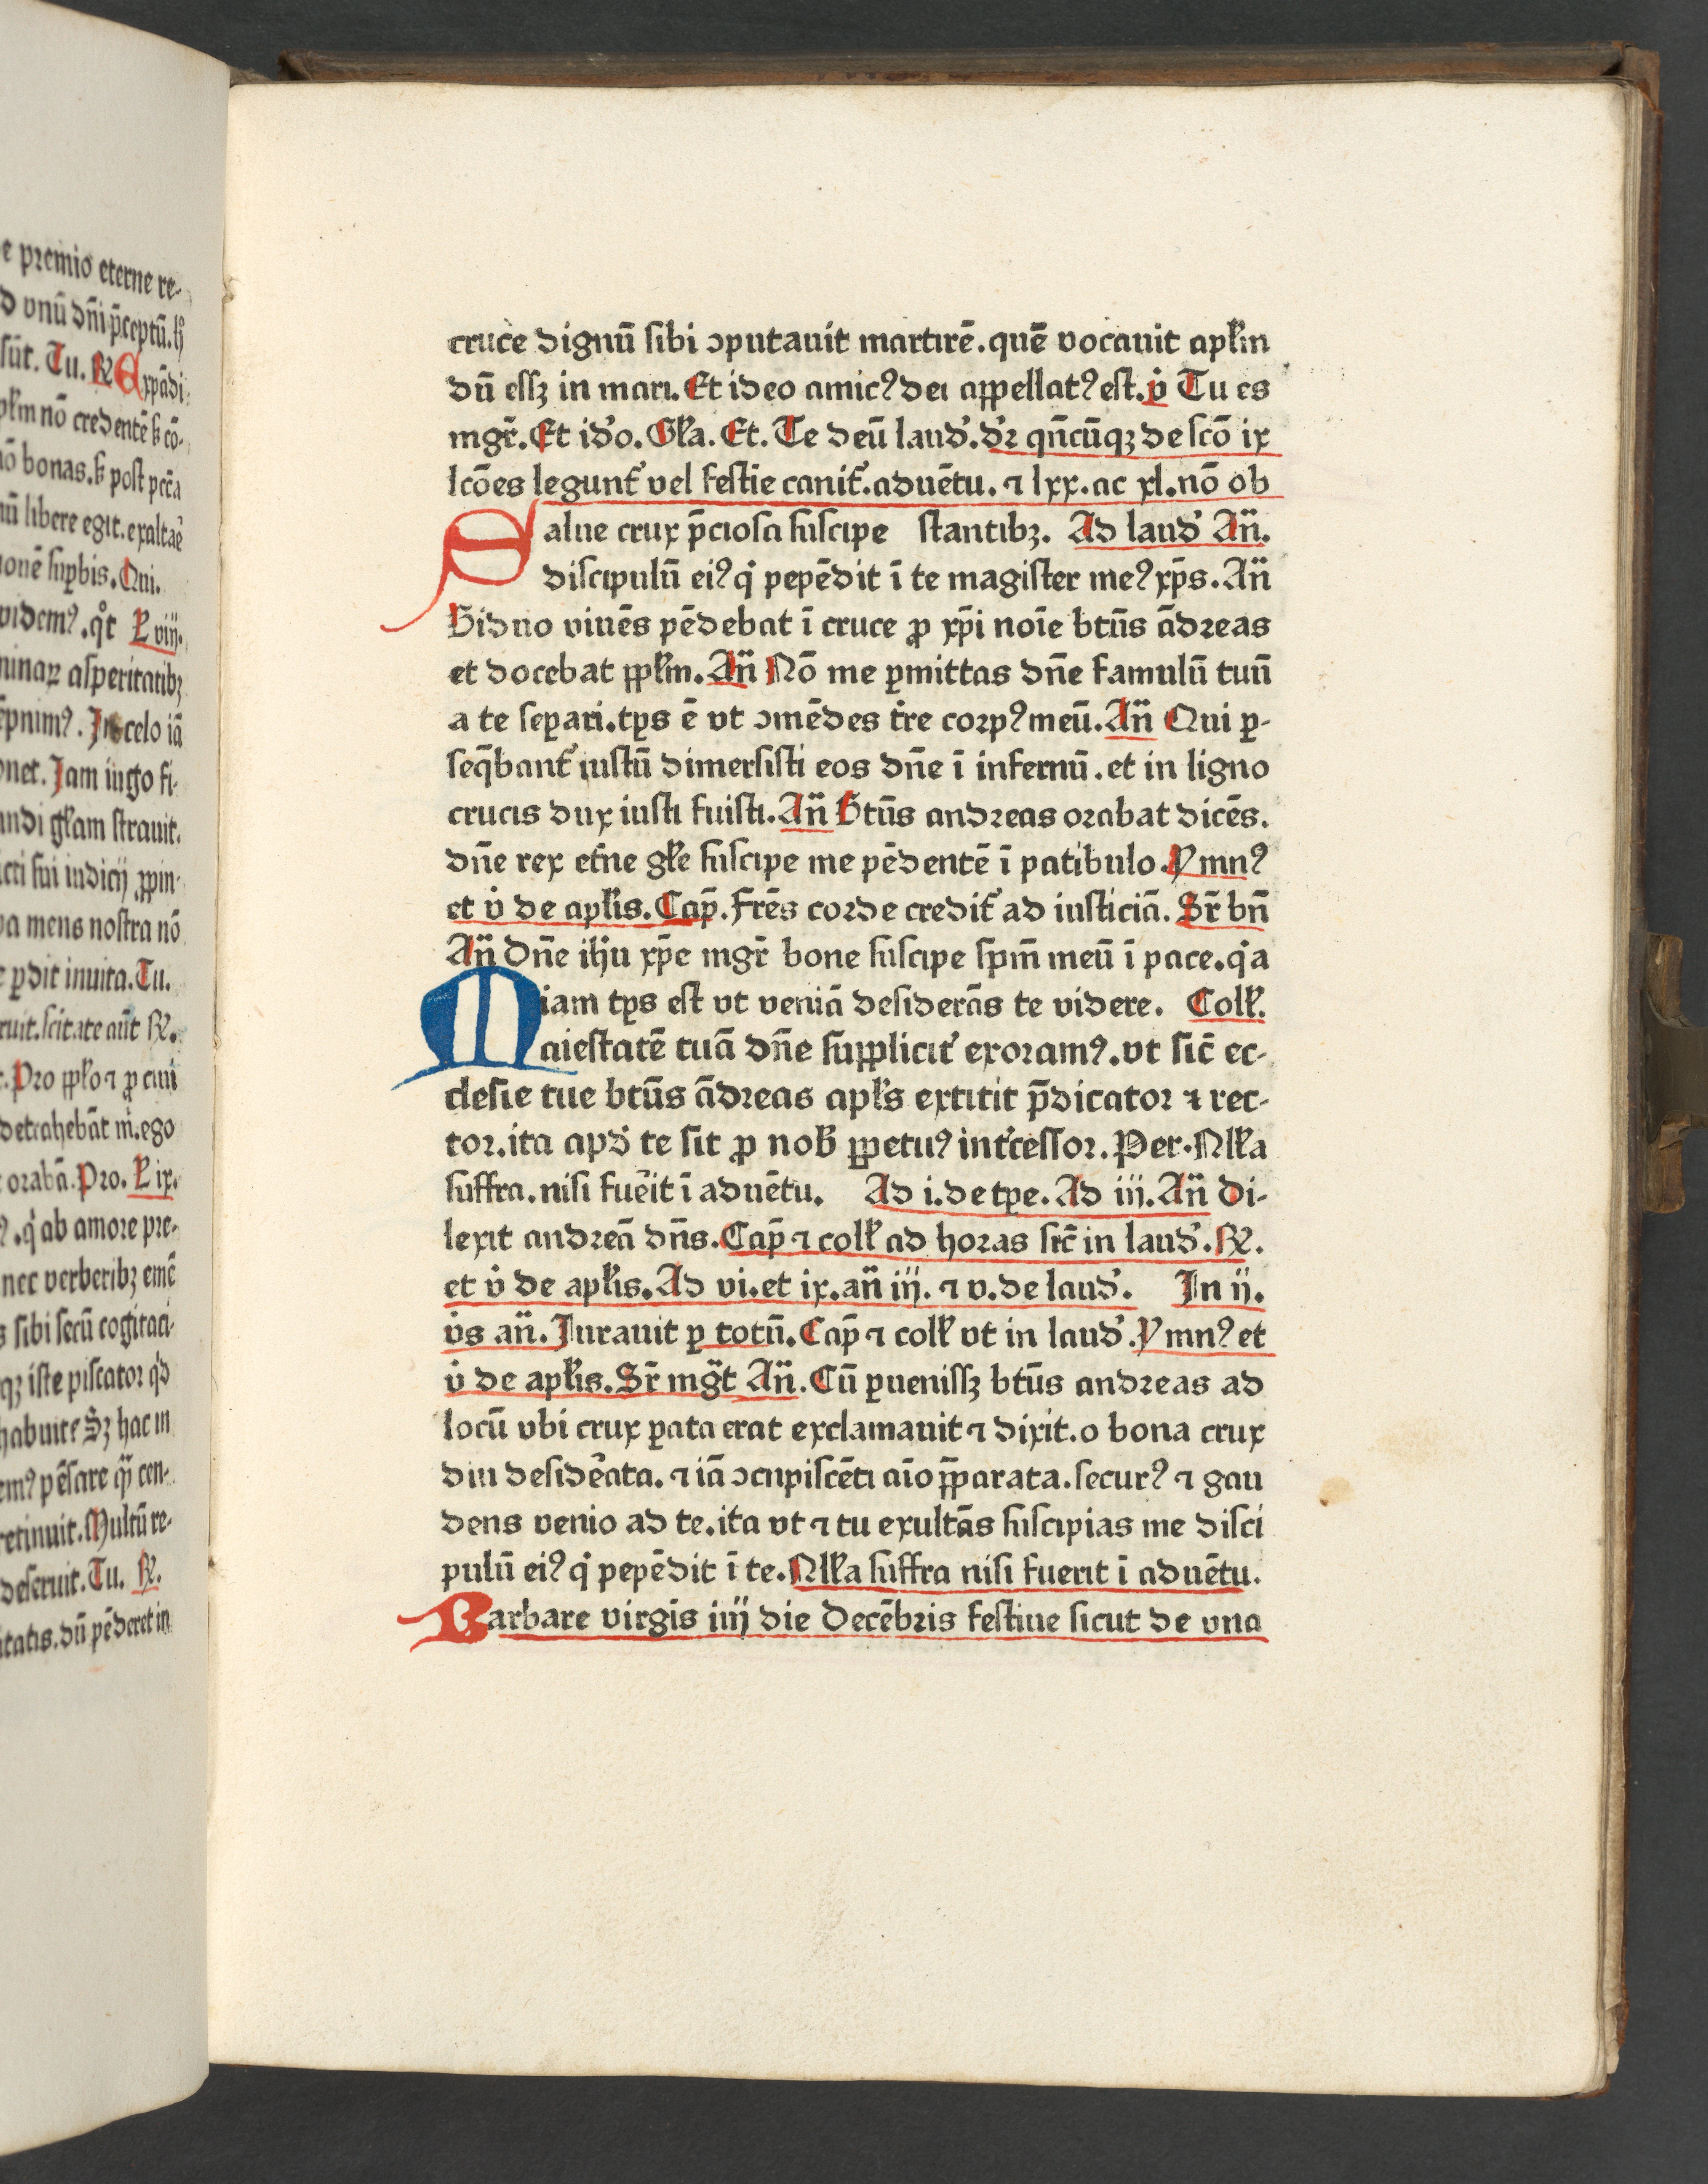 e premio eterne re-
d vnū dn̄i p̄ceptū.
sūt. Tu. ℟ Expādi
nō credentē co-
bonas. post pctā
libere egit.exaltaē
onē supbis. Qui.
videmꝰ. viij.
asperitatibꝫ
In celo iā
Jam iugo fi-
gl̄am strauit.
sui iudicij
mens nostra nō
ꝑdit inuita. Tu.
scitate aūt ℟.
Pro ꝓ ciui
detrahebāt m̄.ego
orabā. Pro. ix.
ab amore pre-
nec verberibꝫ
sibi secū cogitaci-
iste piscator
habuit hac in
pēsare cen-
retinuit. Multū re-
deseruit. Tu. ℟.
dū pēderet in
cruce dignū sibi ꝯputauit martirē.quē vocauit apl̄m
dū essꝫ in mari. Et ideo amicꝰ dei appellatꝰ est. v̇ Tu es
mgr̄. Et id̓o. Gl̄a. Et. Te deū laud̓. d̓r qn̄cūqꝫ de scō ix
lcōes legunt̓ vel festie canit̓. aduētu. ⁊ lxx. ac xl. nō ob
Salue crux p̄ciosa suscipe stantibꝫ. Ad laud̓ An̄.
discipulū eiꝰ q̇ pepēdit ī te magister meꝰ xp̄s. An̄
Biduo viuēs pēdebat ī cruce ꝓ xp̄i noīe btūs ādreas
et docebat ppl̄m. An̄ Nō me ꝑmittas dn̄e famulū tuū
a te seꝑari. tp̱s ē vt ꝯmēdes t̓re corpꝰ meū. An̄ Qui ꝑ-
seq̄bant̓ iustū dimersisti eos dn̄e ī infernū. et in ligno
crucis dux iusti fuisti. An̄ Btūs andreas orabat dicēs.
dn̄e rex et̓ne gl̄e suscipe me pēdentē ī patibulo. Ymnꝰ
et v̇ de apl̄is. Cap̄. Frēs corde credit̓ ad iusticiā. Sr̄ bn̄
An̄ Dn̄e ih̄u xp̄e mgr̄ bone suscipe sp̄m meū ī pace. q̇a
iam tp̱s est vt veniā desiderās te videre. Coll̄.
Maiestatē tuā dn̄e supplicit̓ exoramꝰ. vt sic̄ ec-
clesie tue btūs ādreas apl̄s extitit p̄dicator ⁊ rec-
tor. ita apd̓ te sit ꝓ nob̄ ꝑpetuꝰ int̓cessor. Per. Nll̄a
suffra. nisi fuēit ī aduētu. Ad i. de tꝑe. Ad iij. An̄ Di-
lexit andreā dn̄s. Cap̄ ⁊ coll̄ ad horas sic̄ in laud̓. ℟.
et v̇ de apl̄is. Ad vi. et ix. an̄ iij. ⁊ v. de laud̓. In ij.
v̇s an̄. Jurauit ꝑ totū. Cap̄ ⁊ coll̄ vt in laud̓. Ymnꝰ et
v̇ de apl̄is. Sr̄ mgt̄ An̄. Cū ꝑuenissꝫ btūs andreas ad
locū vbi crux ꝑata erat exclamauit ⁊ dixit. o bona crux
diu desidēata. ⁊ iā ꝯcupiscēti aīo p̄ꝑarata. securꝰ ⁊ gau
dens venio ad te. ita vt ⁊ tu exultās suscipias me disci
pulū eiꝰ q̇ pepēdit ī te. Nll̄a suffra nisi fuerit ī aduētu.
Barbare virgīs iiij die Decēbris festiue sicut de vna